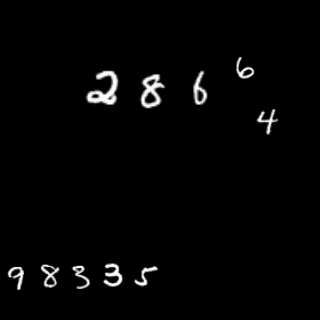 286
6
4
98335